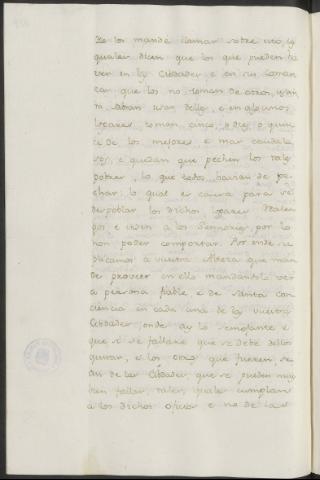 Ze los mandá llamar sobre ello, ẏ
quales dicen que los que pueden to
ver en las Cibdades, e en sus comar
cas que los no toman de otros,
e en algunos
logares toman cinco, o diez, o quin
ce de los mejores e mas cauda lo
sos, e quedan que pechen los tales
pobres, lo que todos havian de pe
char, lo qual es causa para se
despoblar los dichos logares Reales
pos e irsen a los Sennorios, por lo
non poder comportar. Por ende su
plicamos a vuestra Alteza que man
de proveer en ello mandandolo ver
a persona fiable, e de santa con
ciencia en cada una de las vuestras
Cibdades, onde aẏ lo semejante e
que si se fallare que se debe dellos
quitar, e los otros que fueren, se
an de las Cibdades, que se pueden muy
bien fallar tales, quales cumplan
a los dichos oficios e no de las